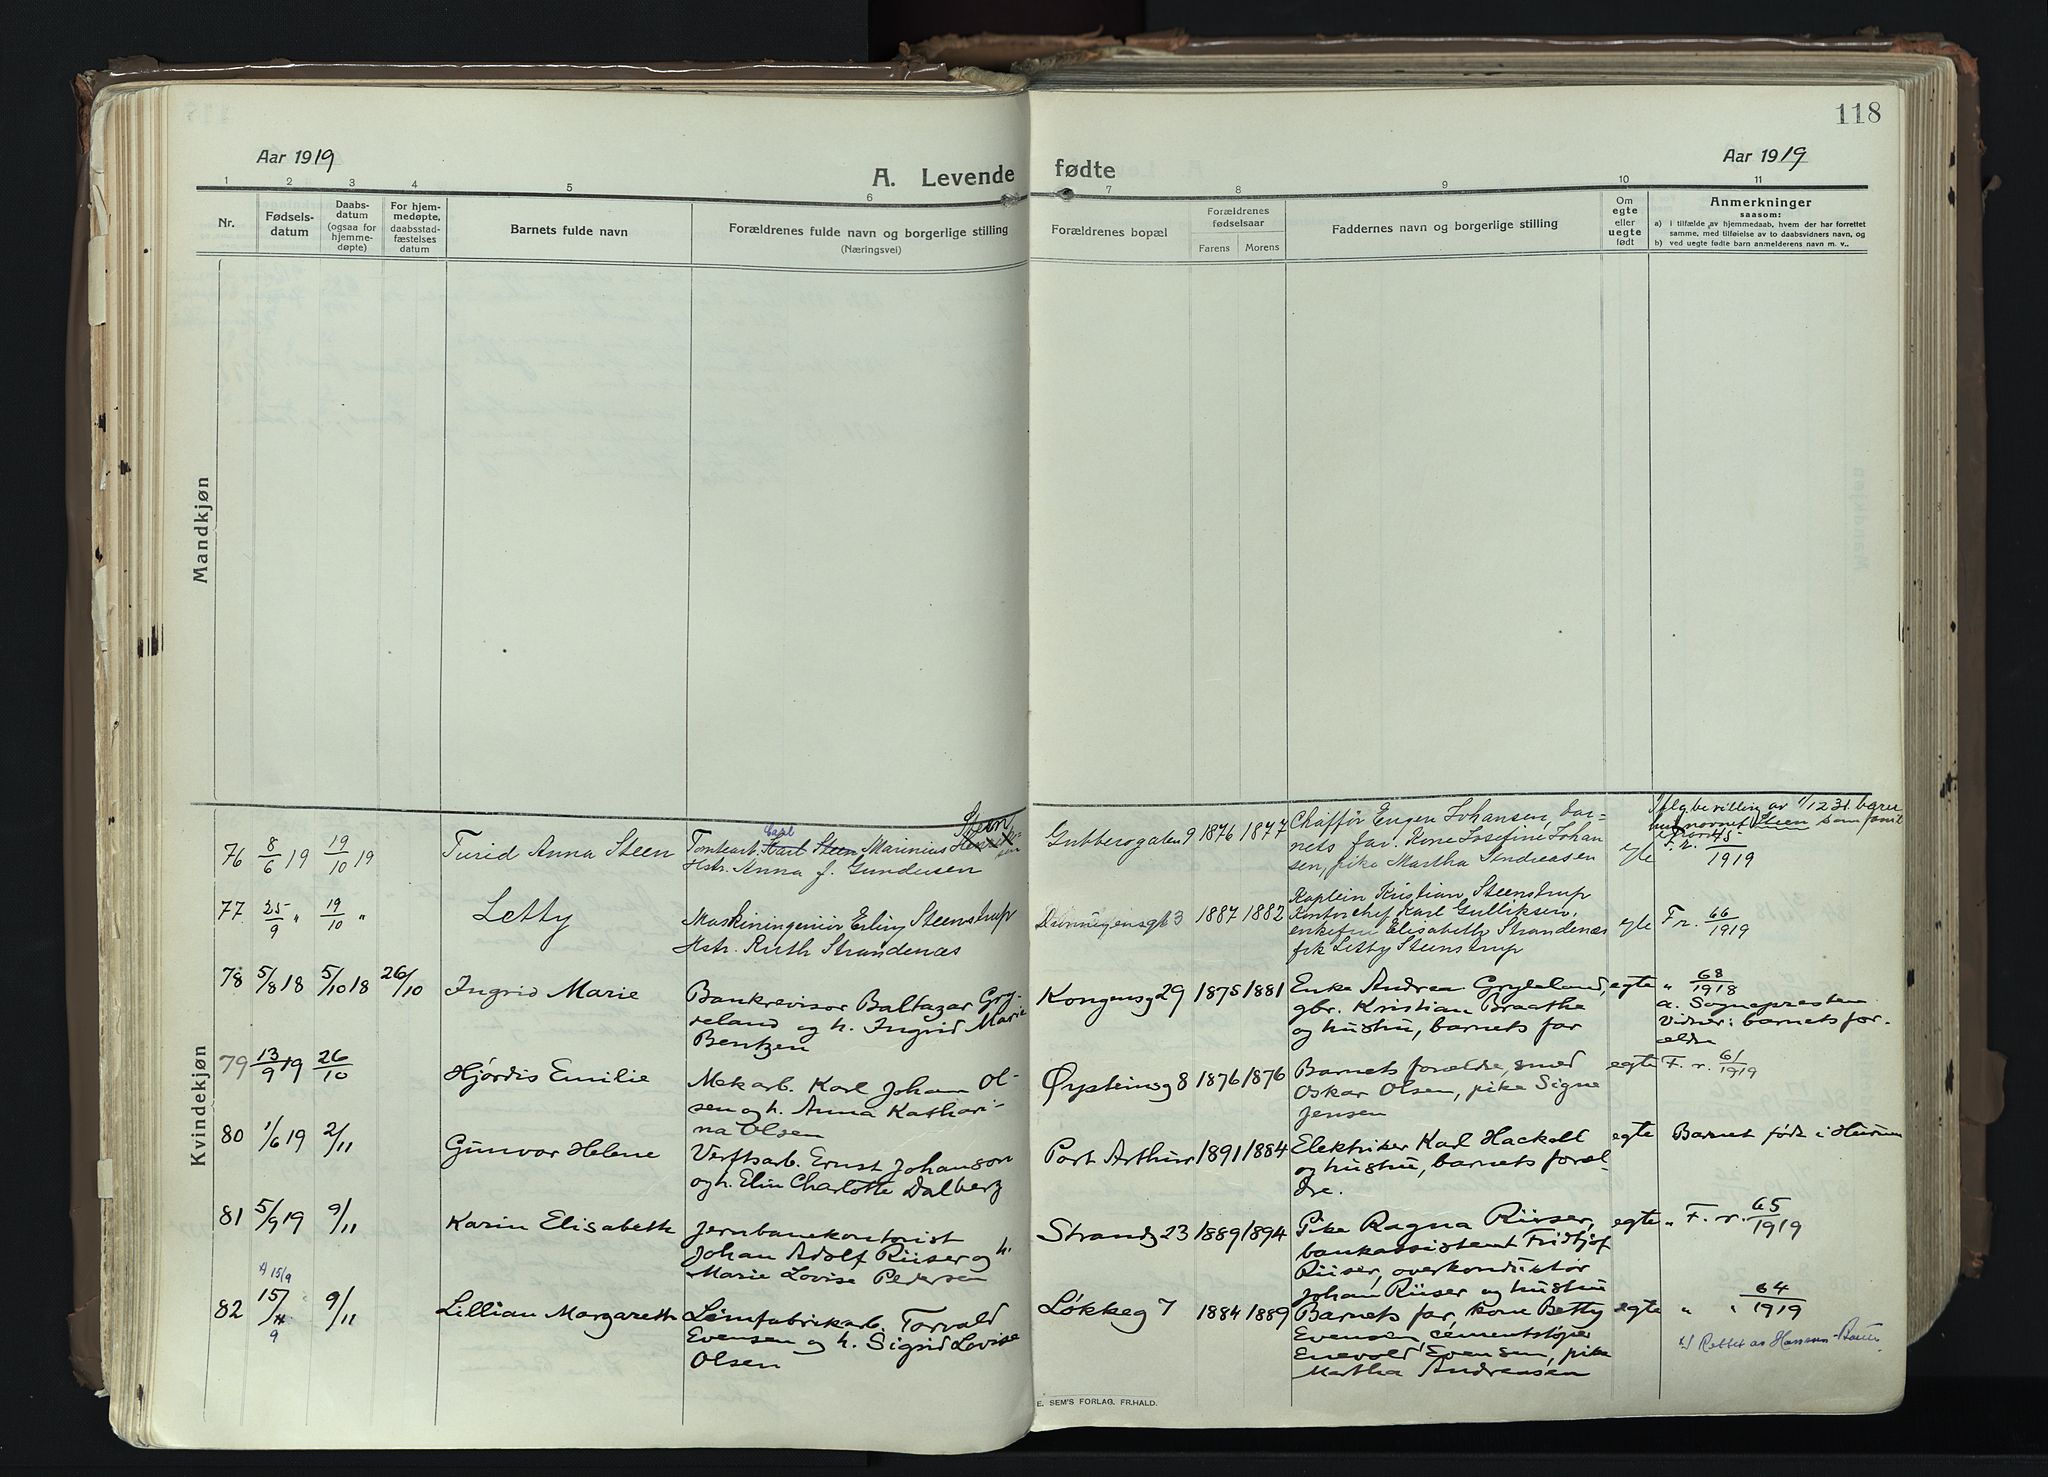 118
Aar 1919
A. Levende fødte
Aar 1919
1 2 3 4 5 6 7 8 9 10 11
Nr.
Fødsels-
datum
Daabs-
datum
(ogsaa for
hjemme-
døpte)
For hjem-
medøpte,
daabsstad-
fæstelses
datum
Barnets fulde navn
Forældrenes fulde navn og borgerlige stilling
(Næringsvei)
Forældrenes bopæl
Forældrenes
fødselsaar
Farens Morens
Faddernes navn og borgerlige stilling
Om
egte
eller
uegte
født
Anmerkninger
saasom:
a) i tilfælde av hjemmedaab, hvem der har forrettet
samme, med tilføielse av to daabsvidners navn, og
b) ved uegte fødte barn anmelderens navn m. v..
Mandkjøn
Kvindekjøn
76 8/6 19 19/10 19
Turid Anna Steen
Carl Steen
Tomtearb. Karl Steen Marinius
Hstr. Anna f. Gundersen
Gubberogaten 9 1876 1877
Chaffør Eugen Johansen, bar-
nets far. Kone Josefine Johan
sen, pike Martha Andreasen
egte
Ifølge bevilling av 1/12 31 barn
navnet Steen som
F. r. 45/1919
77 25/9 " 19/10 "
Letty
Maskiningeniør Erling Steenstrup
Hstr. Ruth Strandenæs
3 1887 1882
Kaptein Kristian Steenstrup
Kontorchef Karl Gulliksen,
enkefru Elisabeth Strandenæs
frk Letty Steenstrup
egte
F r. 66/1919
78 5/8 18 5/10 18 26/10
Ingrid Marie
Bankrevisor Baltazar Gry-
teland og h. Ingrid Marie
Bentzen
Kongensg 29 1875 1881
Enke Andrea Gryteland,
gbr. Kristian Braathe
og hustru, barnets far
egte
" 68/1918
a. Sognepresten
Vidner: barnets for-
ældre
79 13/9 19 26/10
Hjørdis Emilie
Mek arb. Karl Johan Ol-
sen og h. Anna Kathari-
na Olsen
Øysteinsg 8 1876 1876
Barnets forældre, smed
Oskar Olsen, pike Signe
Jensen
egte
F. r. 61/1919
80 1/6 19 2/11
Gunvor Helene
Verftsarb. Ernst Johanson
og h. Elin Charlotte Dalberg
Port Arthur 1891 1884
Elektriker Karl Hackell
og hustru, barnets foræl-
dre.
egte
Barnet født i Hurum
81 5/9 19 9/11
Karin Elisabeth
Jernbanekontorist
Johan Adolf Riiser og h.
Marie Lovise Pedersen
Strandg 23 1889 1894
Pike Ragna Riiser,
bankassistent Fridtjof
Riiser, overkonduktør
Johan Riiser og hustru
egte
" F. r. 65/1919
x) 15/9
82 15/11 9 9/11
Lillian Margareth
Limfabrikarb. Torvald
Evensen og h. Sigrid Lovise
Olsen
Løkkeg 7 1884 1889
Barnets far, kone Betty
Evensen, cementstøper
Enevold Evensen, pike
Martha Andreasen
egte
" " 64/1919
x) Rettet av Hansen-Bauer
E. SEM'S FORLAG. FR.HALD.